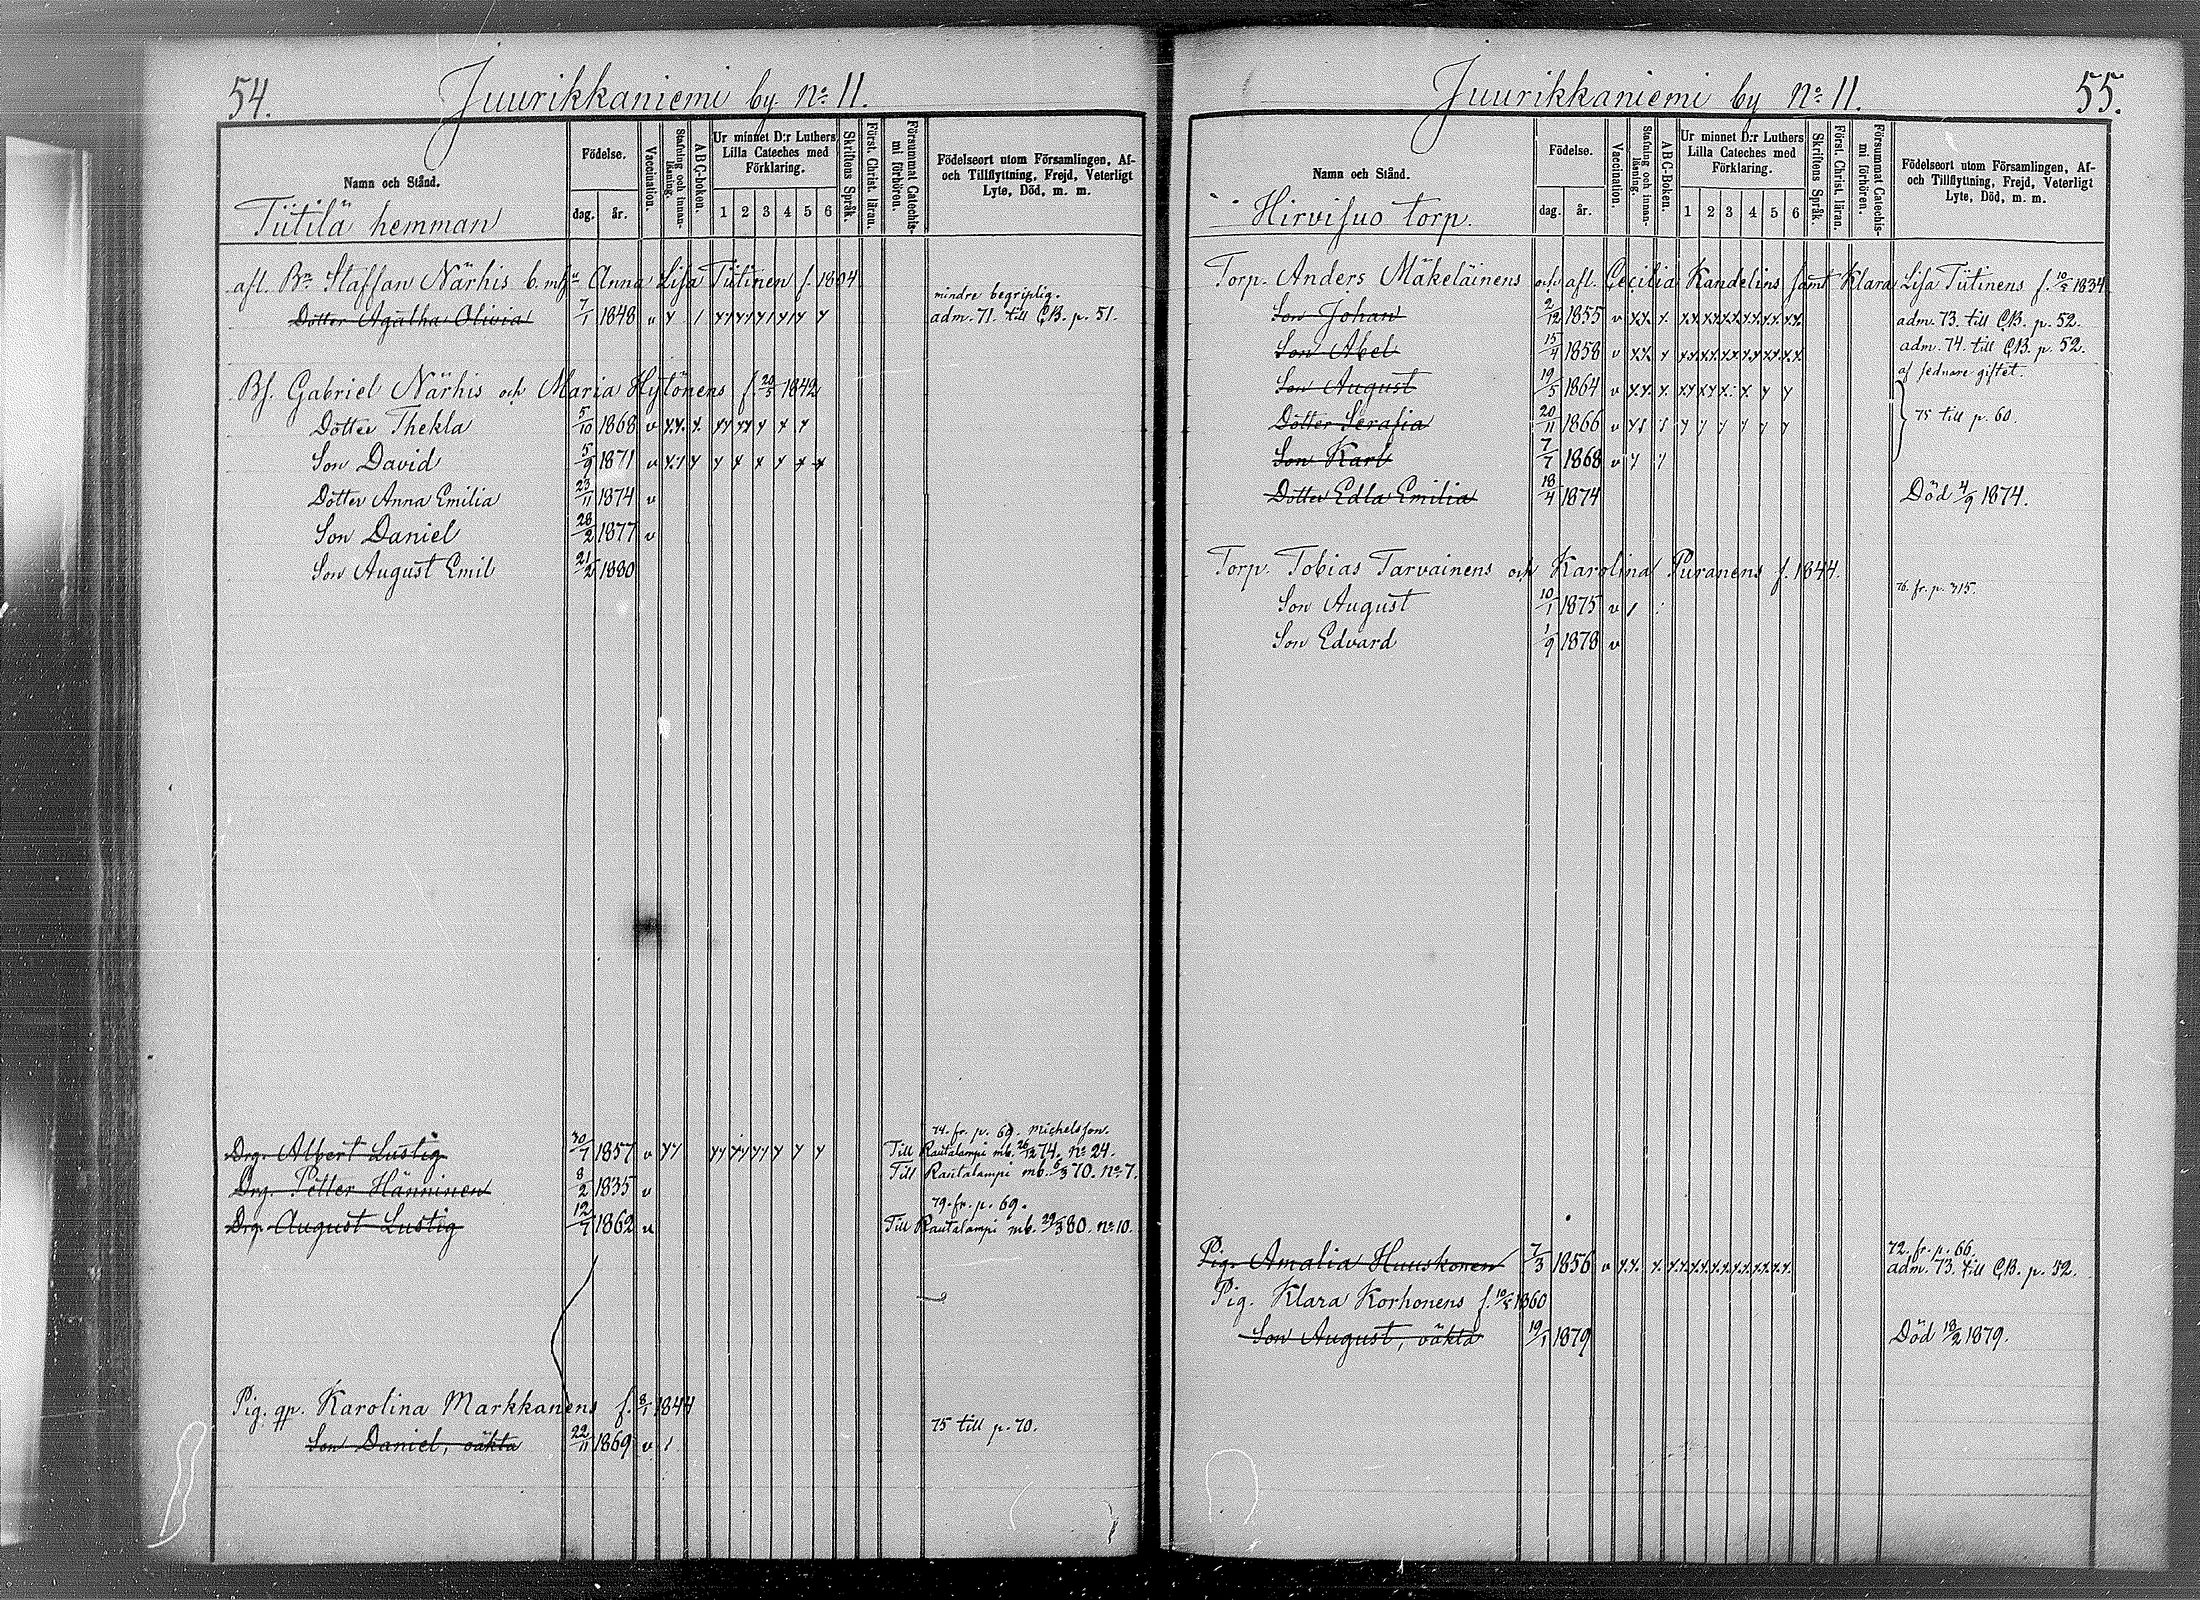 54.
Juurikkaniemi by. No. 11.
Namn och Stånd.
Födelse.
dag.
år.
Vaccination.
Stafning och innan-läsning.
ABC-boken.
Ur minnet D:r Luthers Lilla Cateches med Förklaring.
1 2 3 4 5 6
Skriftens Språk.
Först. Christ. läran.
Försummat Catechismi förhören.
Födelseort utom Församlingen, Af- och Tillflyttning, Frejd, Veterligt Lyte, Död, m. m.
Tiitilä hemman
afl. Bn Staffan Närhis b. mhu Anna Lisa Tiitinen f. 1804
mindre begriplig.
Dotter Agatha Olivia 7/1 1848 v adm. 71. till CB. p. 51.
Bf. Gabriel Närhis och Maria Hytönens f. 20/5 1842
Dotter Thekla 5/10 1868 v
Son David 5/9 1871 v
Dotter Anna Emilia 23/11 1874 v
Son Daniel 28/2 1877 v
Son August Emil 21/2 1880
74. fr. p. 69. Michelsson.
Drg. Albert Lustig 30/7 1857 v Till Rautalampi mb. 26/12 74. no 24.
Drg. Petter Hänninen 8/2 1835 v Till Rautalampi mb. 6/3 70. no 7.
79. fr. p. 69.
Drg. August Lustig 12/7 1862 v Till Rautalampi mb. 29/3 80. no 10.
Pig. qp. Karolina Markkanens f. 8/1 1844
Son Daniel, oäkta 22/11 1869 v 75 till p. 70.
55.
Juurikkaniemi by No. 11.
Namn och Stånd.
Födelse.
dag.
år.
Vaccination.
Stafning och innan-läsning.
ABC-Boken.
Ur minnet D:r Luthers Lilla Cateches med Förklaring.
1 2 3 4 5 6
Skriftens Språk.
Först. Christ. läran.
Försummat Catechismi förhören.
Födelseort utom Församlingen, Af- och Tillflyttning, Frejd, Veterligt Lyte, Död, m. m.
Hirvisuo torp.
Torp. Anders Mäkeläinens och afl. Cecilia Kandelins samt Klara Lisa Tiitinens f. 10/2 1834
Son Johan 2/12 1855 v adm. 73. till CB. p. 52.
Son Abel 15/4 1858 v adm. 74. till CB. p. 52.
af sednare giftet.
Son August 19/5 1864 v
Dotter Serafia 20/11 1866 v 75 till p. 60.
Son Karl 7/7 1868 v
Dotter Edla Emilia 18/4 1874 Död 4/9 1874.
Torp. Tobias Tarvainens och Karolina Puranens f. 1844.
76. fr. p. 315.
Son August 10/1 1875 v
Son Edvard 1/9 1878 v
72. fr. p. 66.
Pig. Amalia Huuskonen 7/3 1856 v adm. 73. till CB. p. 52.
Pig. Klara Korhonens f. 10/5 1860
Son August, oäkta 19/1 1879 Död 18/2 1879.